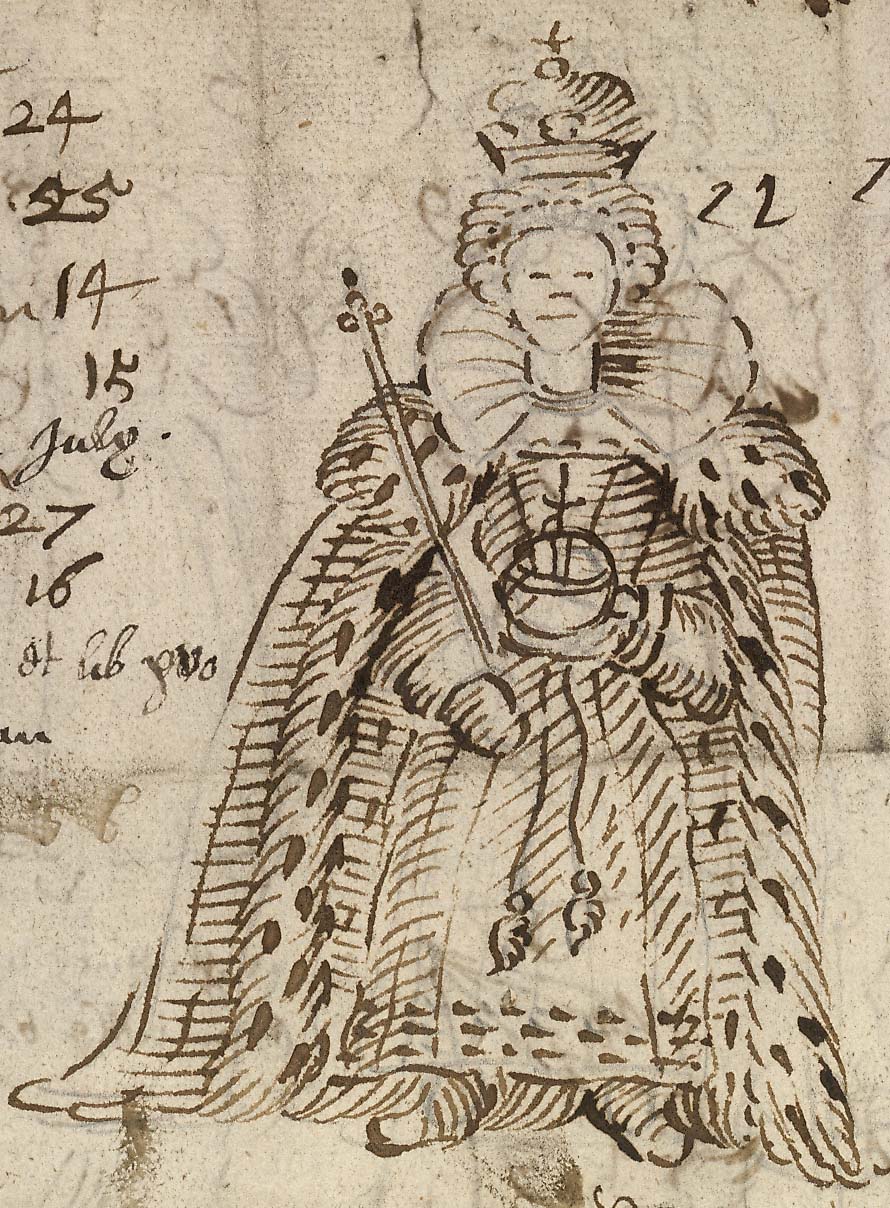 24
22
25
14
15
July.
27
16
et lib pro